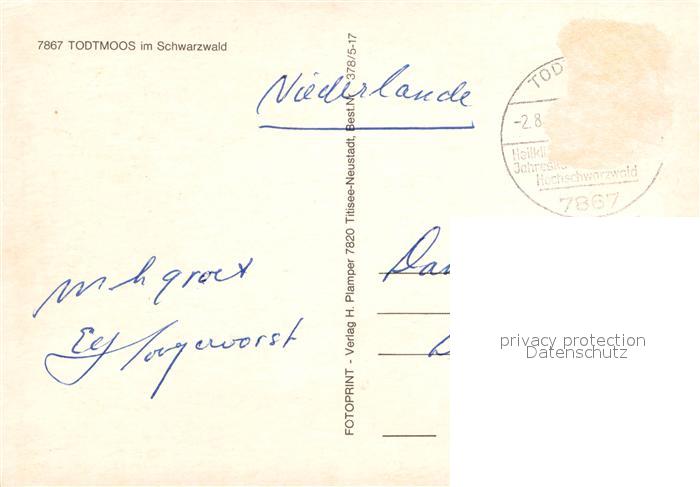 7867 TODTMOOS im Schwarzwald
Niederlande
m h groet
FOTOPRINT - Verlag H. Plamper 7820 Titisee-Neustadt, Best.Nr. 378/5-17
TOD
-2.8.
Heilkli
Jahres
Hochschwarzwald
7867
privacy protection
Datenschutz